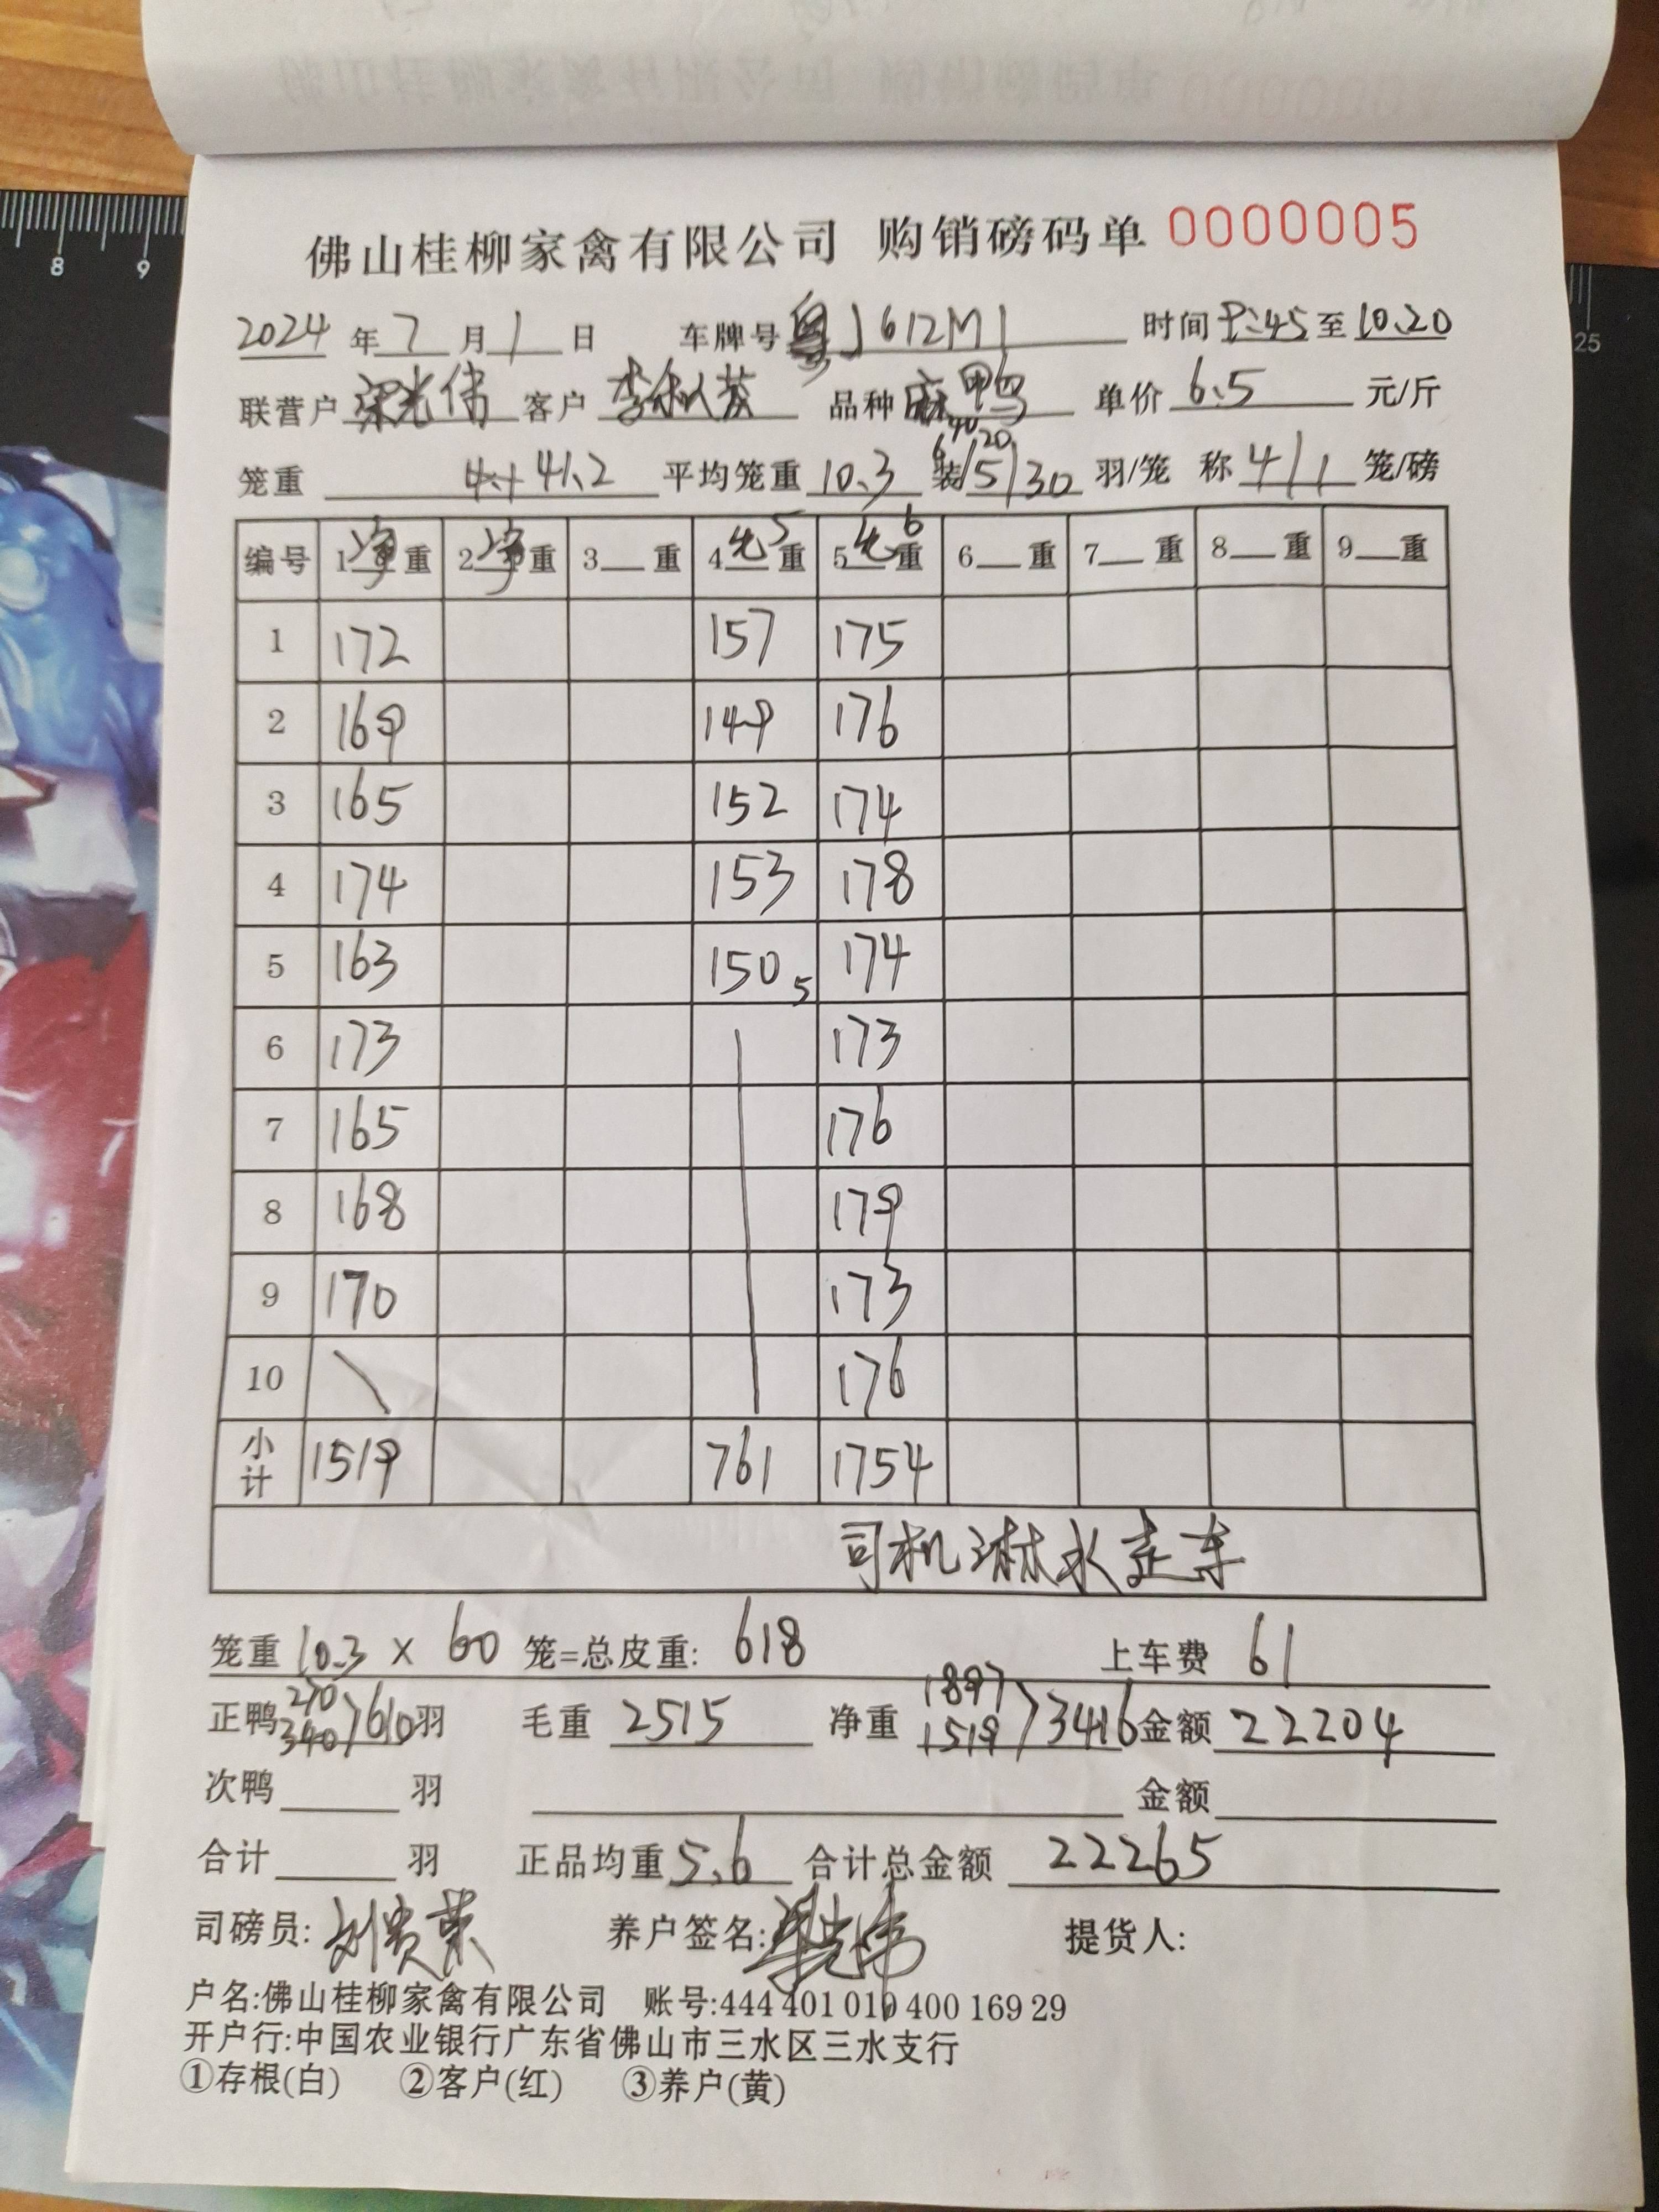 佛山桂柳家禽有限公司 购销磅码单 0000005
2024 年 7 月 1 日 车牌号 粤J612M1 时间 9:45 至 10.20
联营户 梁光伟 客户 李秋芬 品种 麻鸭 单价 6.5 元/斤
笼重 41.2 平均笼重 10.3 装 15/30 羽/笼 称 4/1 笼/磅
编号 1净重 2净重 3 重 4毛5重 5毛6重 6 重 7 重 8 重 9 重
1 172 157 175
2 169 149 176
3 165 152 174
4 174 153 178
5 163 150 5 174
6 173 173
7 165 176
8 168 179
9 170 173
10 176
小计 1519 761 1754
司机淋水走车
笼重 10.3 × 60 笼=总皮重: 618 上车费 61
正鸭 270 340 610 羽 毛重 2515 净重 1897 1519 3416 金额 22204
次鸭 羽 金额
合计 羽 正品均重 5.6 合计总金额 22265
司磅员: 刘贵荣 养户签名: 梁光伟 提货人:
户名:佛山桂柳家禽有限公司 账号:444 401 010 400 169 29
开户行:中国农业银行广东省佛山市三水区三水支行
①存根(白) ②客户(红) ③养户(黄)